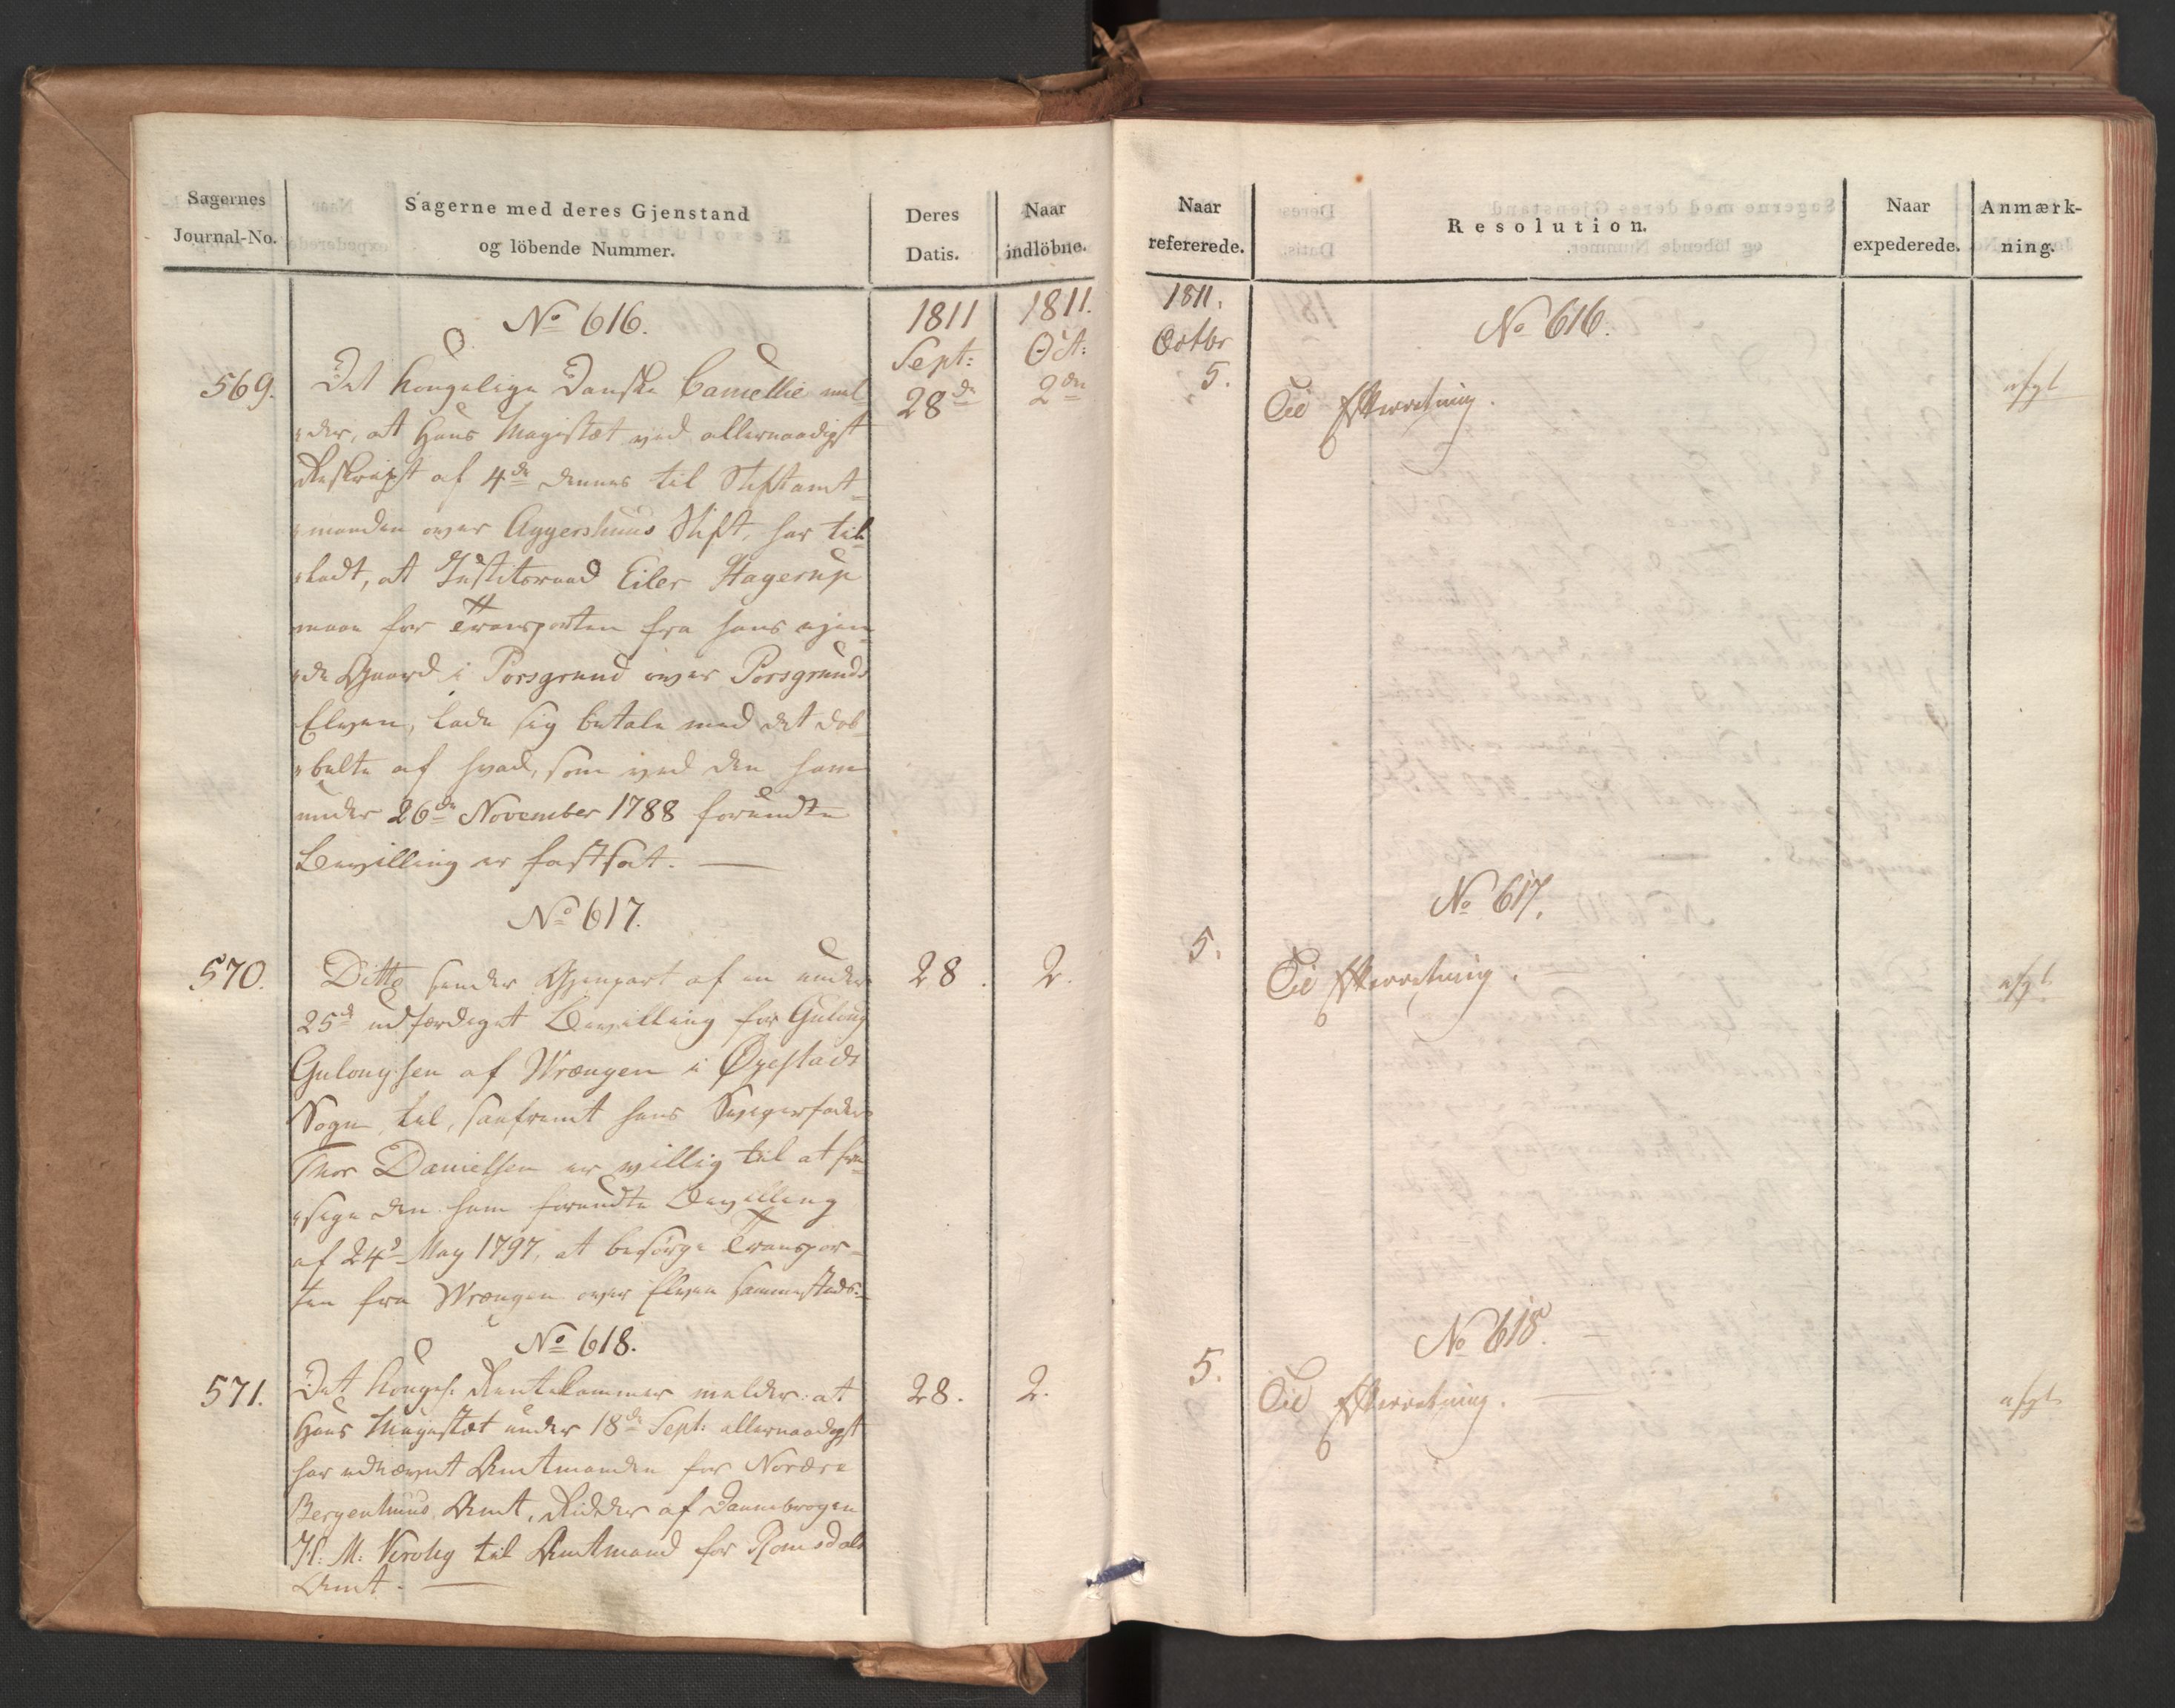 Sagernes
Journal-No.
Sagerne med deres Gjenstand
og löbende Nummer.
Deres
Datis.
Naar
indlöbne.
No 616.
1811
Sept:
28de
1811.
Oct:
2den
569. Det kongelige Danske Cancellie mel-
der, at Hans Majestæt ved allernaadigst
Reskript af 4de dennes til Stiftamt-
manden over Aggershuus Stift, har til-
ladt, at Justitsraad Eiler Hagerup
maae for Transporten fra hans ejen-
de Gaard i Porsgrund over Porsgrunds
Elven, lade sig betale med det dob-
belte af hvad, som ved den ham
under 26de November 1788 forundte
Bevilling er fastsat. —
No 617.
570. Ditto sender Gjenpart af en under 28. 2.
25de udfærdiget Bevilling for Gulong
Gulongsen af Wrængen i Øyestads
Sogn til, saafremt hans Svigerfader
Thor Danielsen er villig til at fra-
sige den ham forundte Bevilling
af 24de May 1797, at besörge Transpor-
ten fra Wrængen over Elven sammesteds.
No 618.
571. Det kongel. Rentekammer melder: at 28. 2.
Hans Majestæt under 18de Sept: allernaadigst
har udnævnt Amtmanden for Nordre
Bergenhuus Amt, Ridder af Dannebrogen
H: M: Krohg til Amtmand for Romsdals
Amt. —
Naar
refererede.
Resolution.
Naar
expederede.
Anmærk-
ning.
1811.
Octbr
5.
No 616.
Til Efterretning.
No 617.
5.
Til Efterretning.
No 618.
5.
Til Efterretning. —